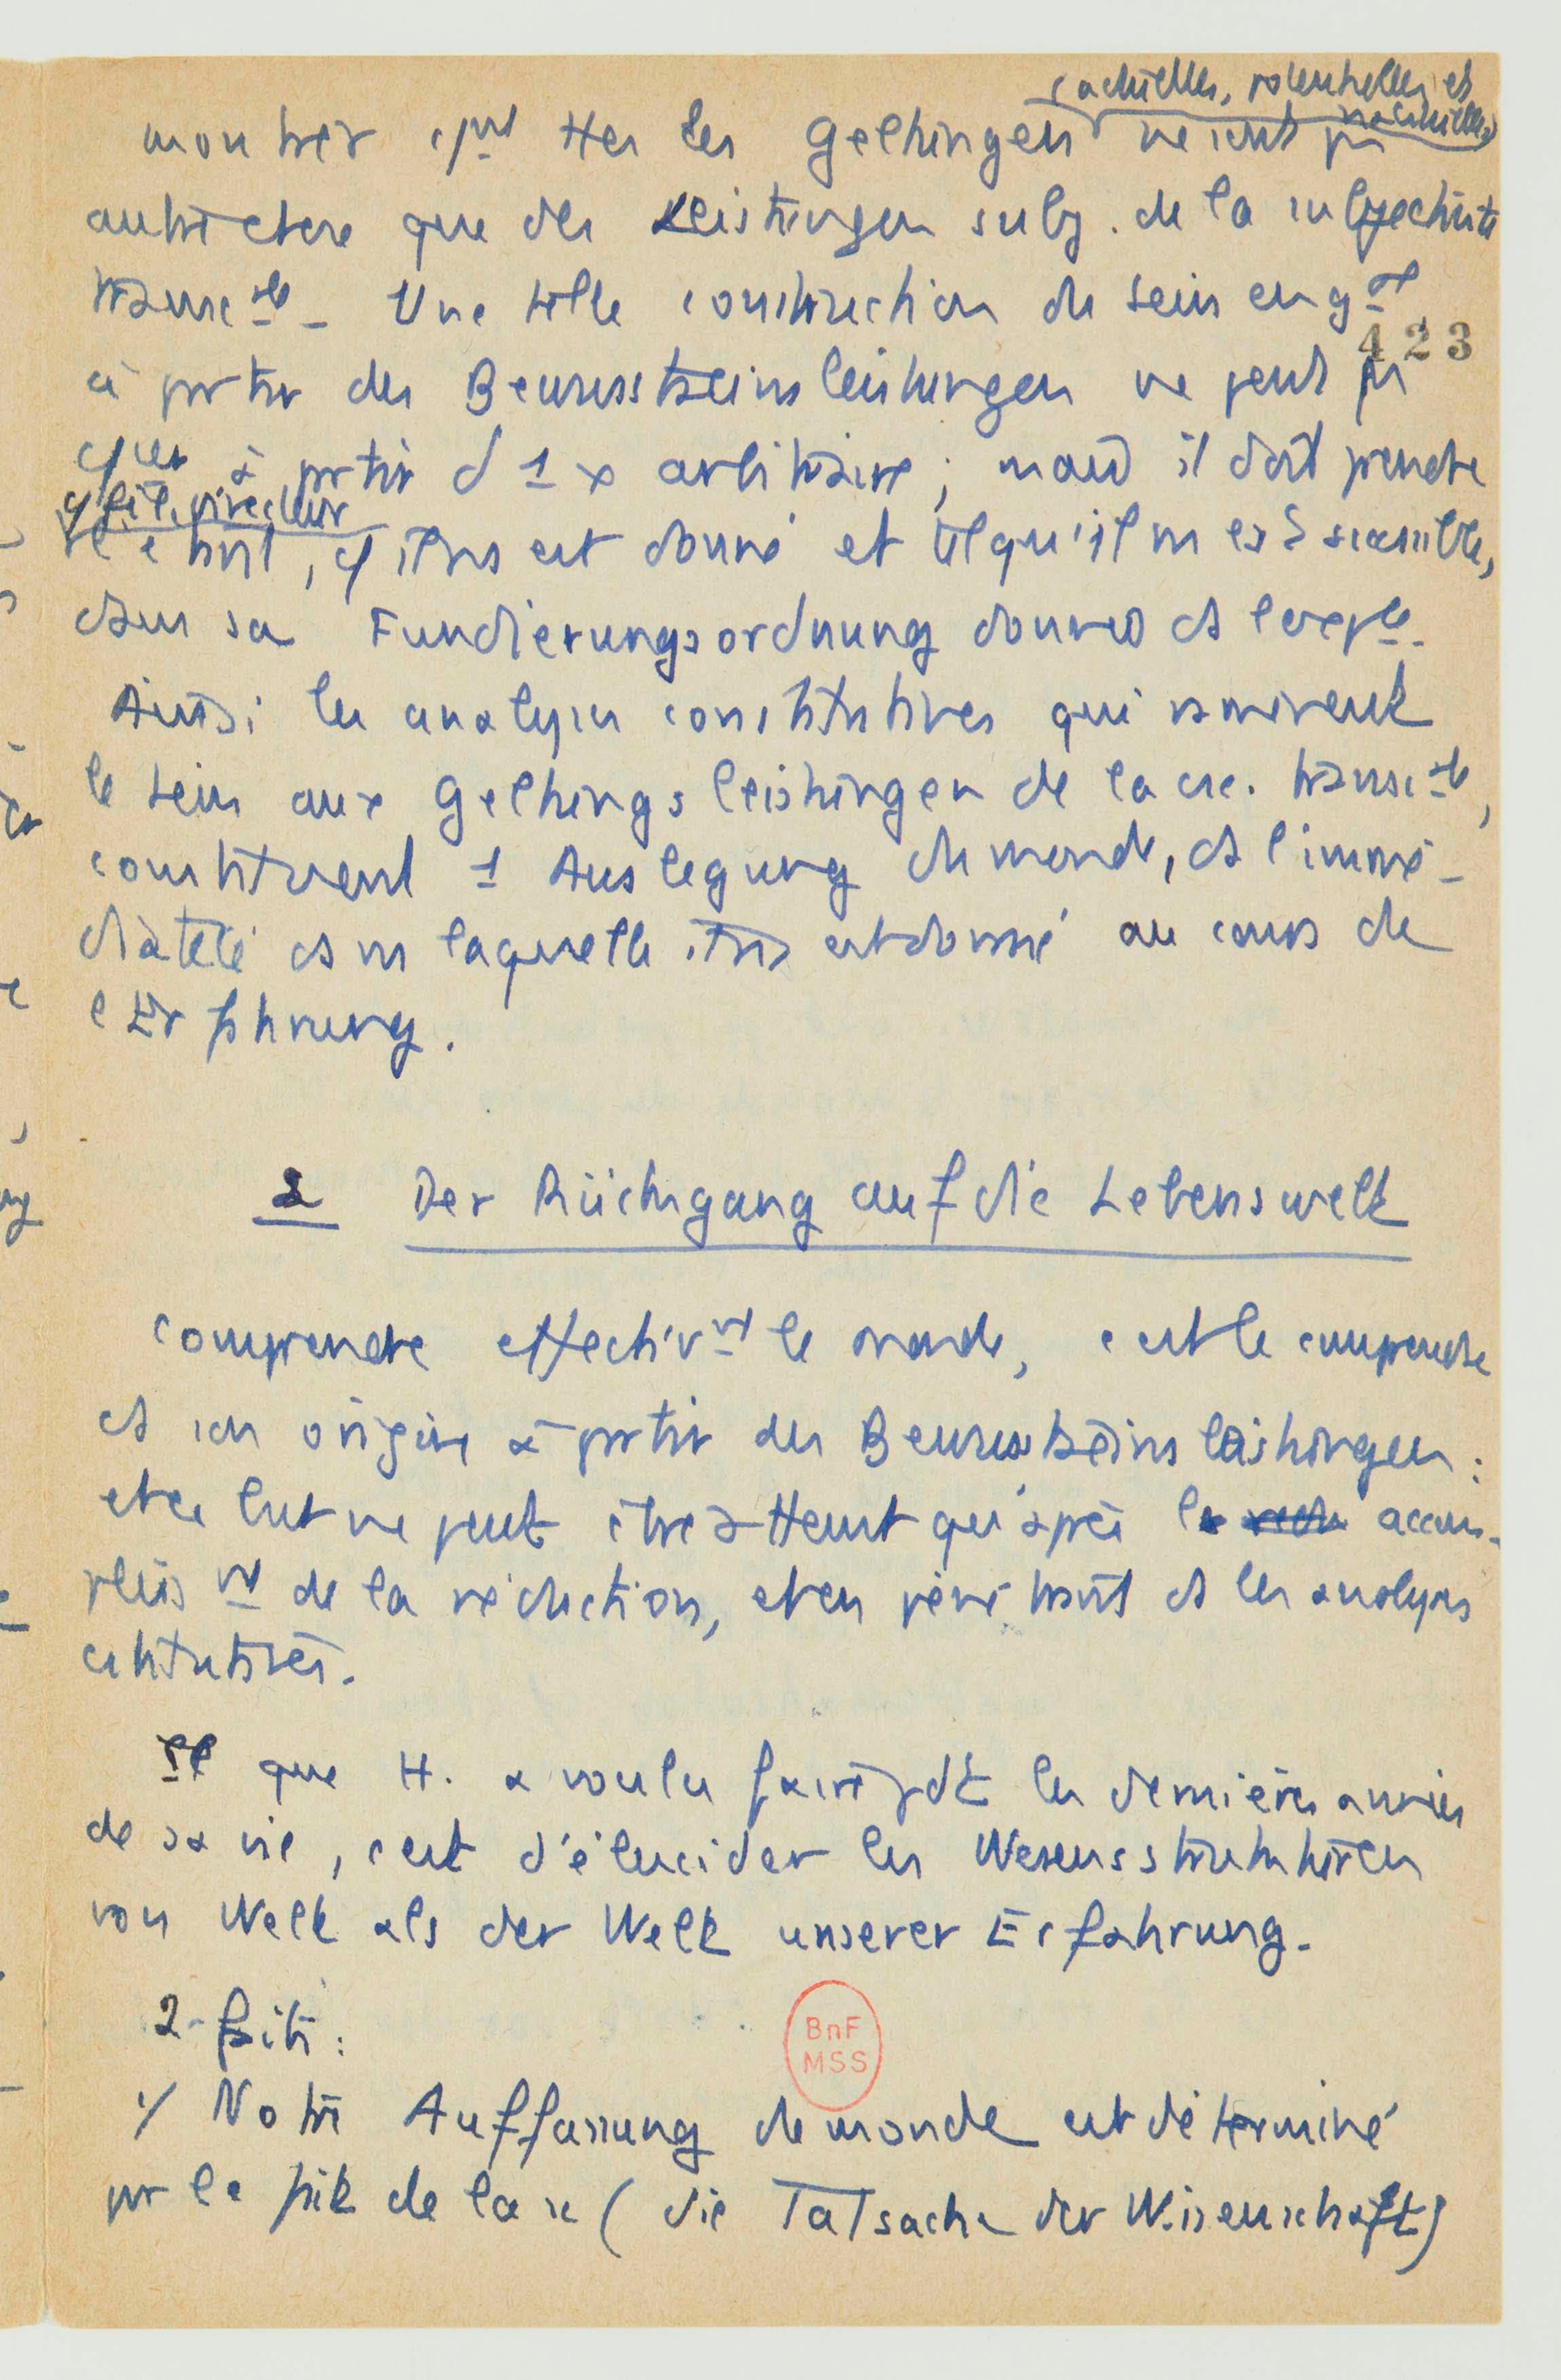 (actuelles, potentielles et
inactuelles)
montrer cmt ttes les Geltungen ne sont pas
autre chose que des Leistungen subj. de la subjectivité
transcle. Une telle construction du sein engal
423
à partir des Bewusstseinsleistungen ne peut pas
à partir d'1 x arbitraire ; mais il doit prendre
fil directeur
, est donné et tel qu'il ns est accessible,
dans sa Fundierungsordnung donnée ds l'expce.
Ainsi les analyses constitutives qui ramènent
le sein aux Geltungsleistungen de la csc. transcle,
constituent 1 Auslegung du monde, ds l'immé-
diateté ds laquelle il ns est donné au cours de
l'Erfahrung.
2 Der Rückgang auf die Lebenswelt
Comprendre effectivmt le monde, c'est le comprendre
ds son origine à partir des Bewusstseinsleistungen :
et ce but ne peut être atteint qu'après l' accom-
plissmt de la réduction, et en pénétrant ds les analyses
cstitutives.
que H. a voulu faire pdt les dernières années
de sa vie, c'est d'élucider les Wesensstrukturen
von Welt als der Welt unserer Erfahrung.
2 faits :
1/ Notre Auffassung du monde est déterminé
par le fait de la sc (die Tatsache der Wissenschaft)
BnF
MSS